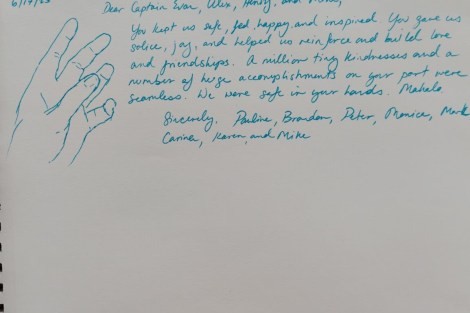 Dear Captain
You kept us safe, fed, happy, and inspired. You gave us
solice, joy, and helped us reinforce and build love
and friendships. A million tiny kindnesses and a
number of huge accomplishments on your part were
seamless. We were safe in your hands. Mahalo.
Sincerely, Pauline, Brandon, Peter, Monica, Mark
Carina, Karen, and Mike